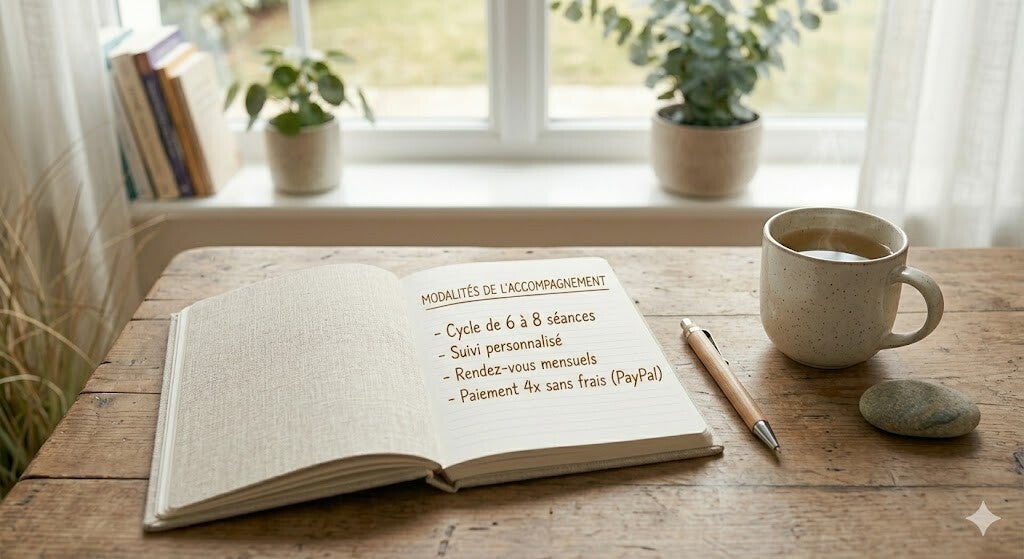 MODALITÉS DE L'ACCOMPAGNEMENT
- Cycle de 6 à 8 séances
- Suivi personnalisé
- Rendez-vous mensuels
- Paiement 4x sans frais (PayPal)